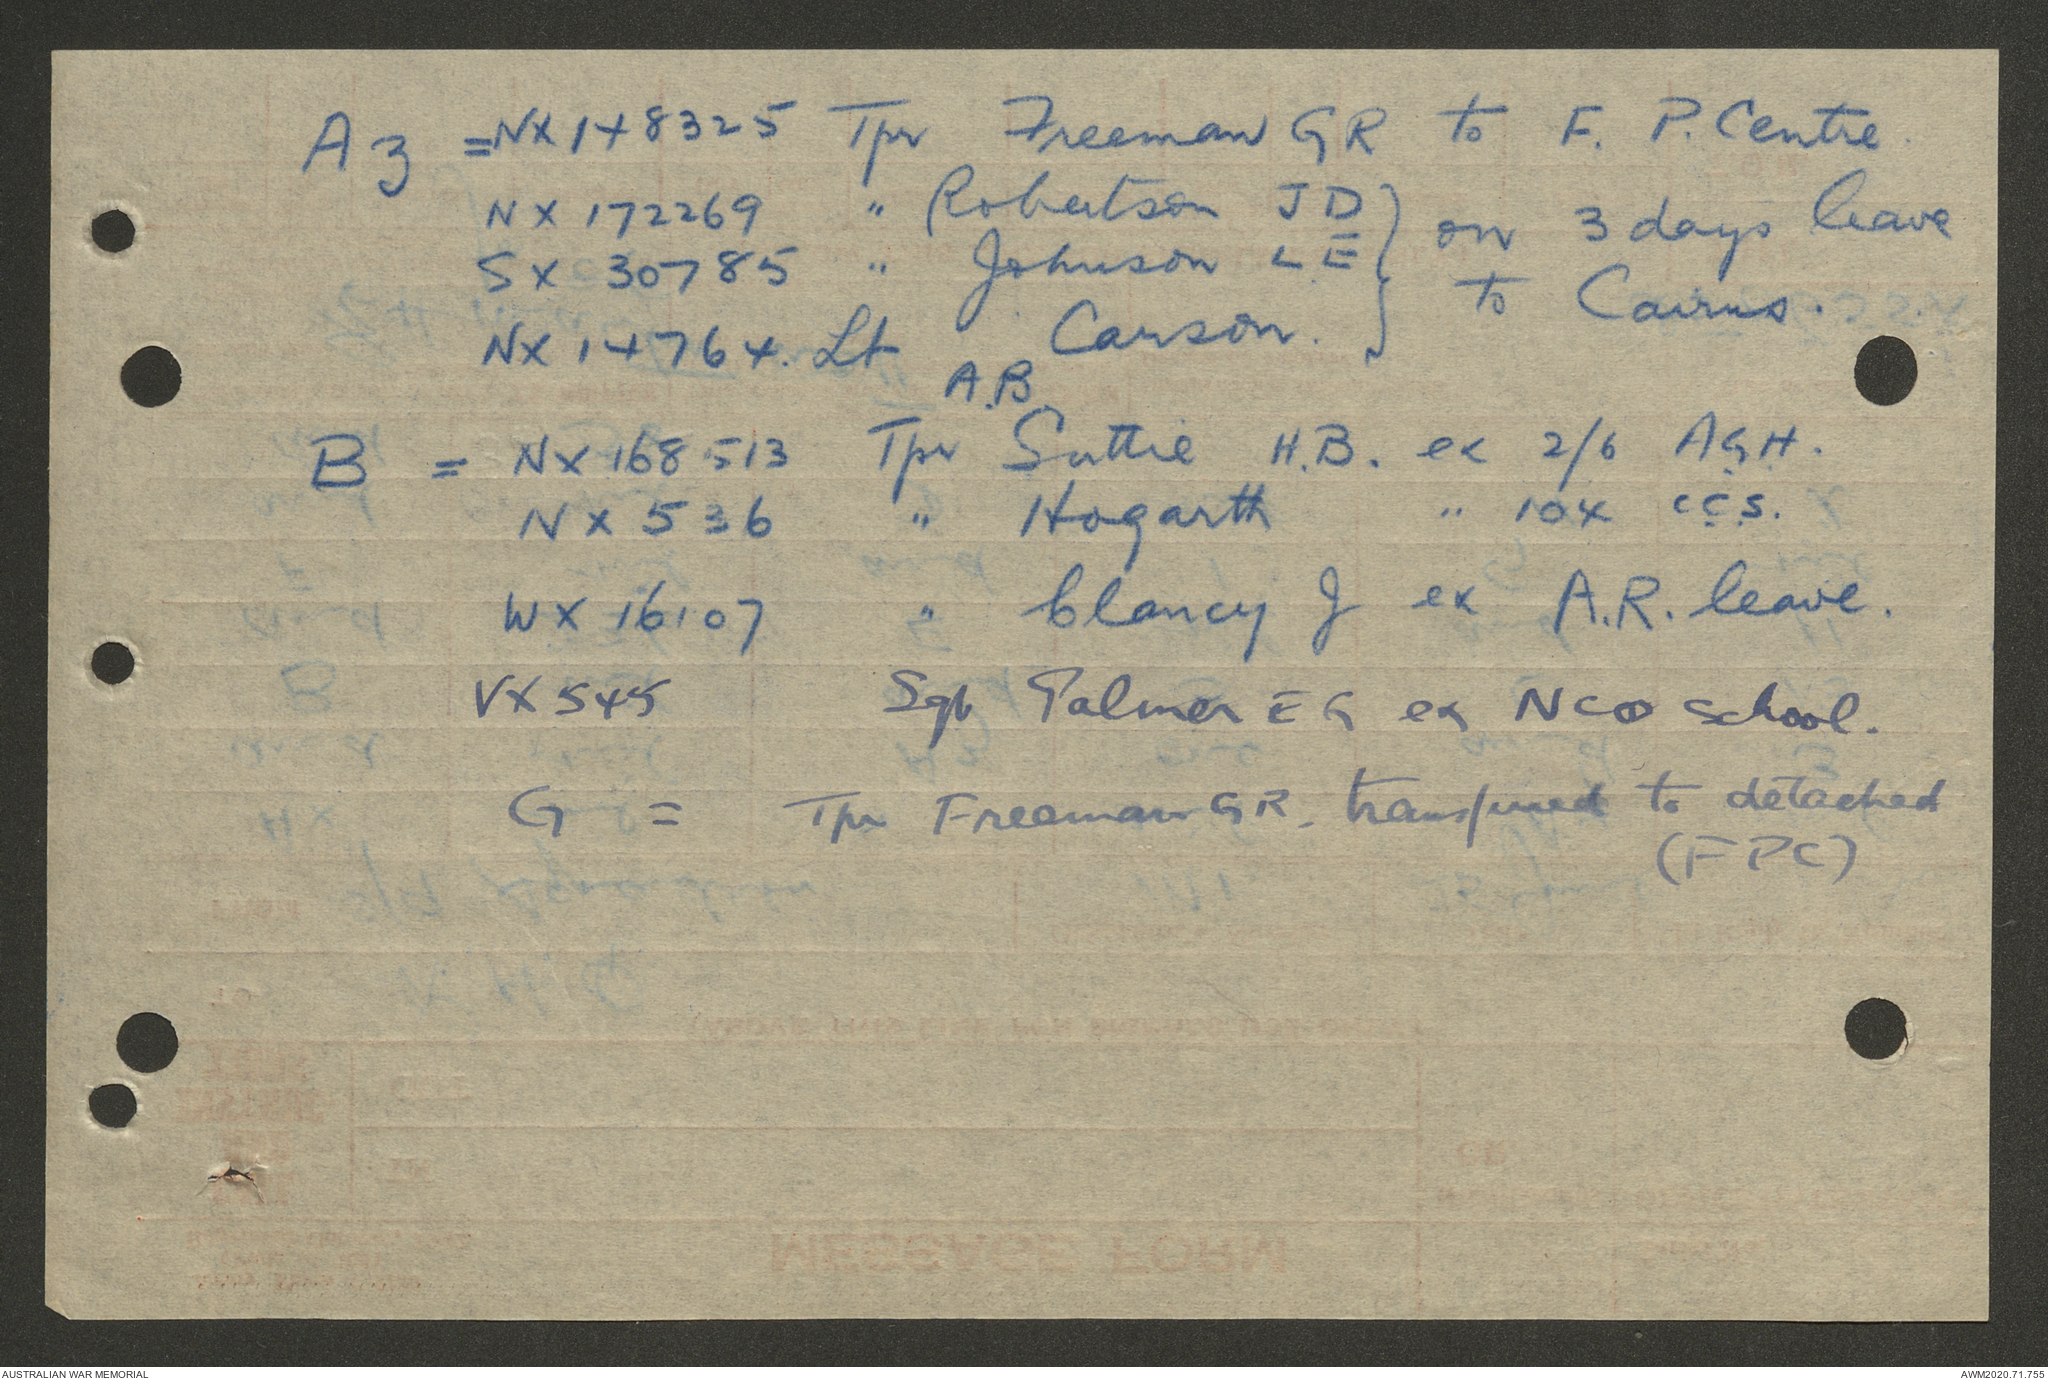 A3 = NX148325 Tpr Freeman GR to F. P. Centre.
NX 172269 " Robertson JD } on 3 days leave
SX 30785 " Johnson L.E } to Cairns.
NX 14764. Lt Carson. }
A.B.
B = NX 168513 Tpr Suttie H.B. ex 2/6 A.G.H.
NX 536 " Hogarth " 104 C.C.S.
WX 16107 " Clancy J ex A.R. leave.
VX 545 Sgt Palmer EG ex NCO School.
G = Tpr Freeman GR. transferred to detached
(FPC)
MESSAGE FORM
AUSTRALIAN WAR MEMORIAL
AWM2020.71.755